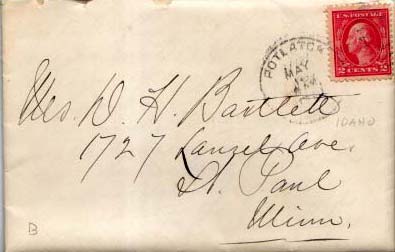 U.S. POSTAGE
2 CENTS 2
POTLATCH
MAY
Mrs. D. H. Bartlett
1727 Laurel Ave.
IDAHO
St. Paul
Minn.
B